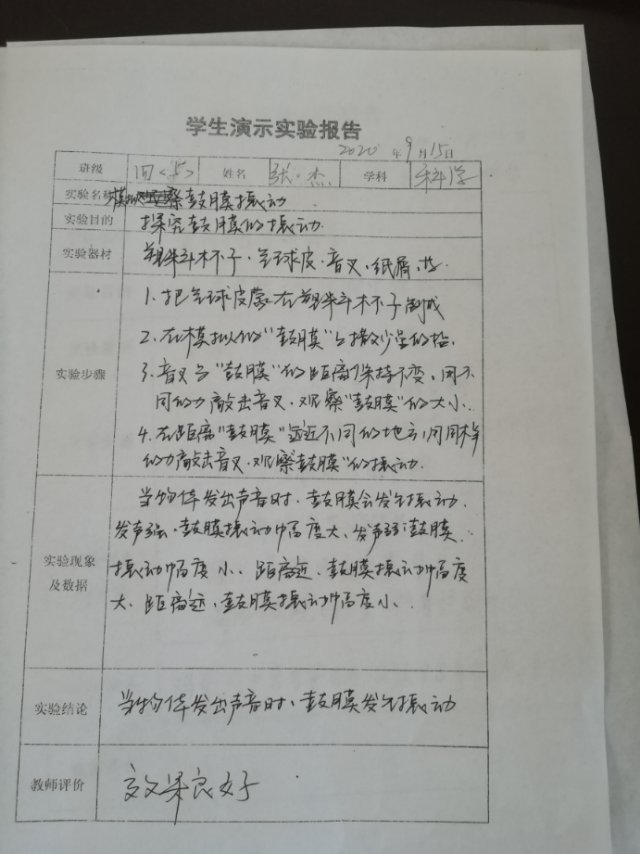 学生演示实验报告
2020年9月15日
班级 四<5> 姓名 张杰 学科 科学
实验名称 模拟观察鼓膜振动
实验目的 探究鼓膜的振动
实验器材 塑料杯子、气球皮、音叉、纸屑、盐
实验步骤
1. 把气球皮蒙在塑料杯子制成
2. 在模拟的"鼓膜"上撒少量的盐.
3. 音叉与"鼓膜"的距离保持不变,用不
同的力敲击音叉,观察"鼓膜"的大小.
4. 在距离"鼓膜"远近不同的地方,用同样
的力敲击音叉,观察"鼓膜"的振动.
实验现象及数据
当物体发出声音时,鼓膜会发生振动.
发声强,鼓膜振动幅度大、发声弱鼓膜
振动幅度小、距离近、鼓膜振动幅度
大、距离远、鼓膜振动幅度小.
实验结论 当物体发出声音时、鼓膜发生振动
教师评价 效果良好